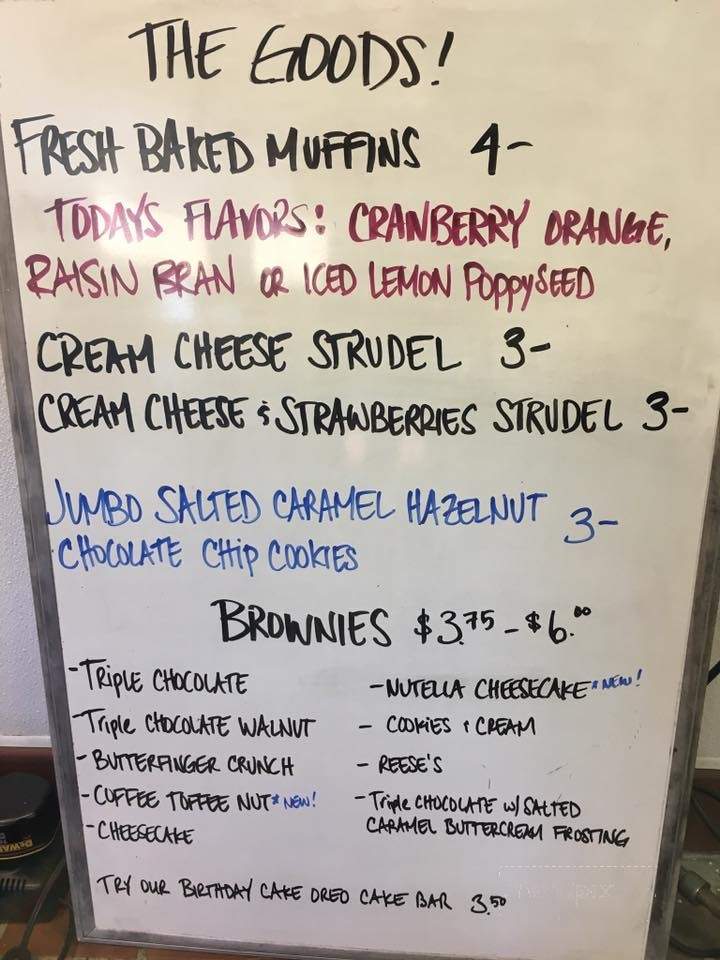 THE GOODS!
FRESH BAKED MUFFINS 4-
TODAYS FLAVORS: CRANBERRY ORANGE,
RAISIN BRAN OR ICED LEMON POPPYSEED
CREAM CHEESE STRUDEL 3-
CREAM CHEESE & STRAWBERRIES STRUDEL 3-
JUMBO SALTED CARAMEL HAZELNUT 3-
CHOCOLATE CHIP COOKIES
BROWNIES $3.75 - $6.00
- TRIPLE CHOCOLATE
- TRIPLE CHOCOLATE WALNUT
- BUTTERFINGER CRUNCH
- COFFEE TOFFEE NUT * NEW!
- CHEESECAKE
- NUTELLA CHEESECAKE * NEW!
- COOKIES & CREAM
- REESE'S
- TRIPLE CHOCOLATE W/ SALTED
CARAMEL BUTTERCREAM FROSTING
TRY OUR BIRTHDAY CAKE OREO CAKE BAR 3.50